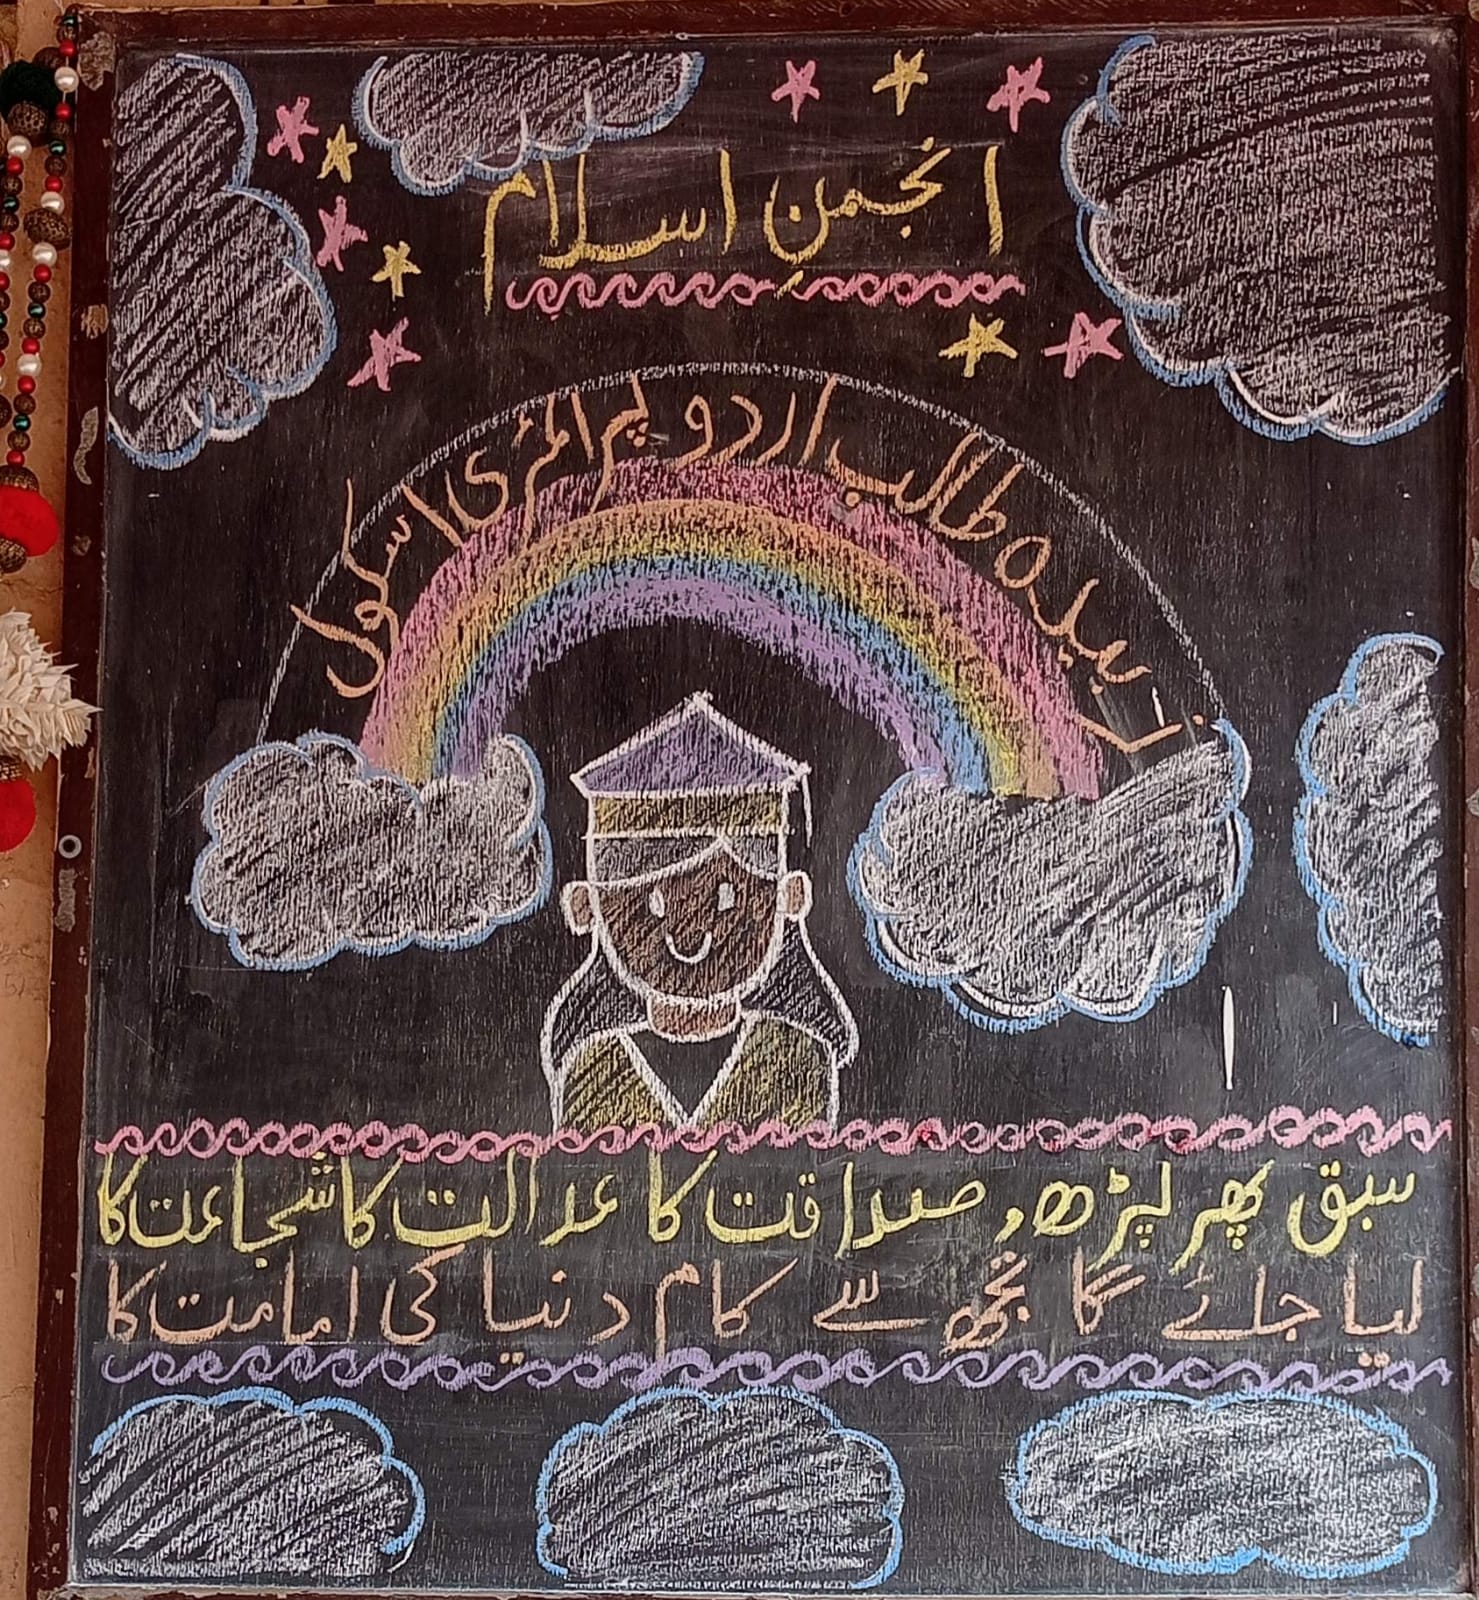 انجمنِ اسلام
زبیدہ طالب اردو پرائمری اسکول
سبق پھر پڑھ، صداقت کا عدالت کا شجاعت کا
لیا جائے گا تجھ سے کام دنیا کی امامت کا